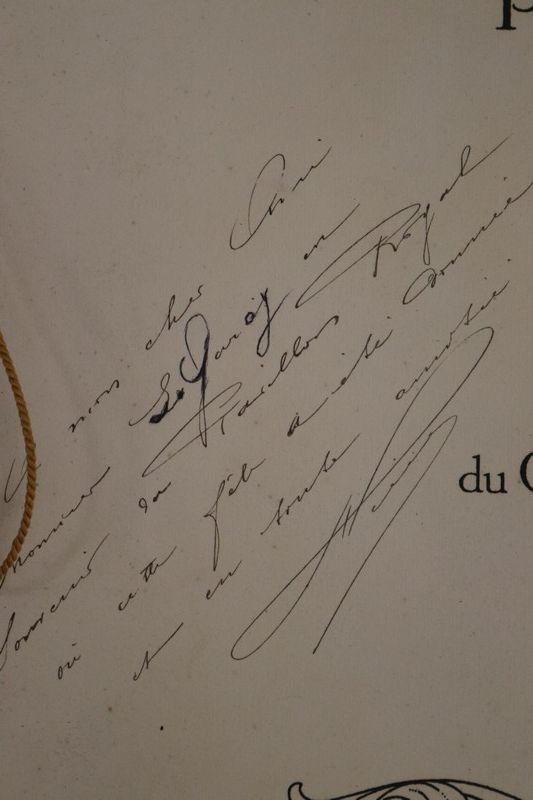 p
A mon cher Ami
Monsieur en
Souvenir du Pavillon Royal
où cette fête a été donnée
et en toute amitié.
du C